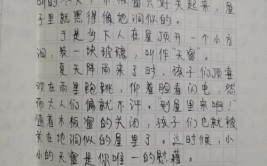 里就黑得像地洞似的。
于是乡下人在屋顶开一个小方
洞,装一块玻璃,叫作"天窗"。
夏天阵雨来了时,孩子们顶喜
欢在雨里跑跳,仰着脸看闪电,然
而大人们偏就不许。"到屋里来呀!"
随着木板窗的关闭,孩子们也就被
关在地洞似的屋里了。这时候,小
小的天窗是你唯一的慰藉。